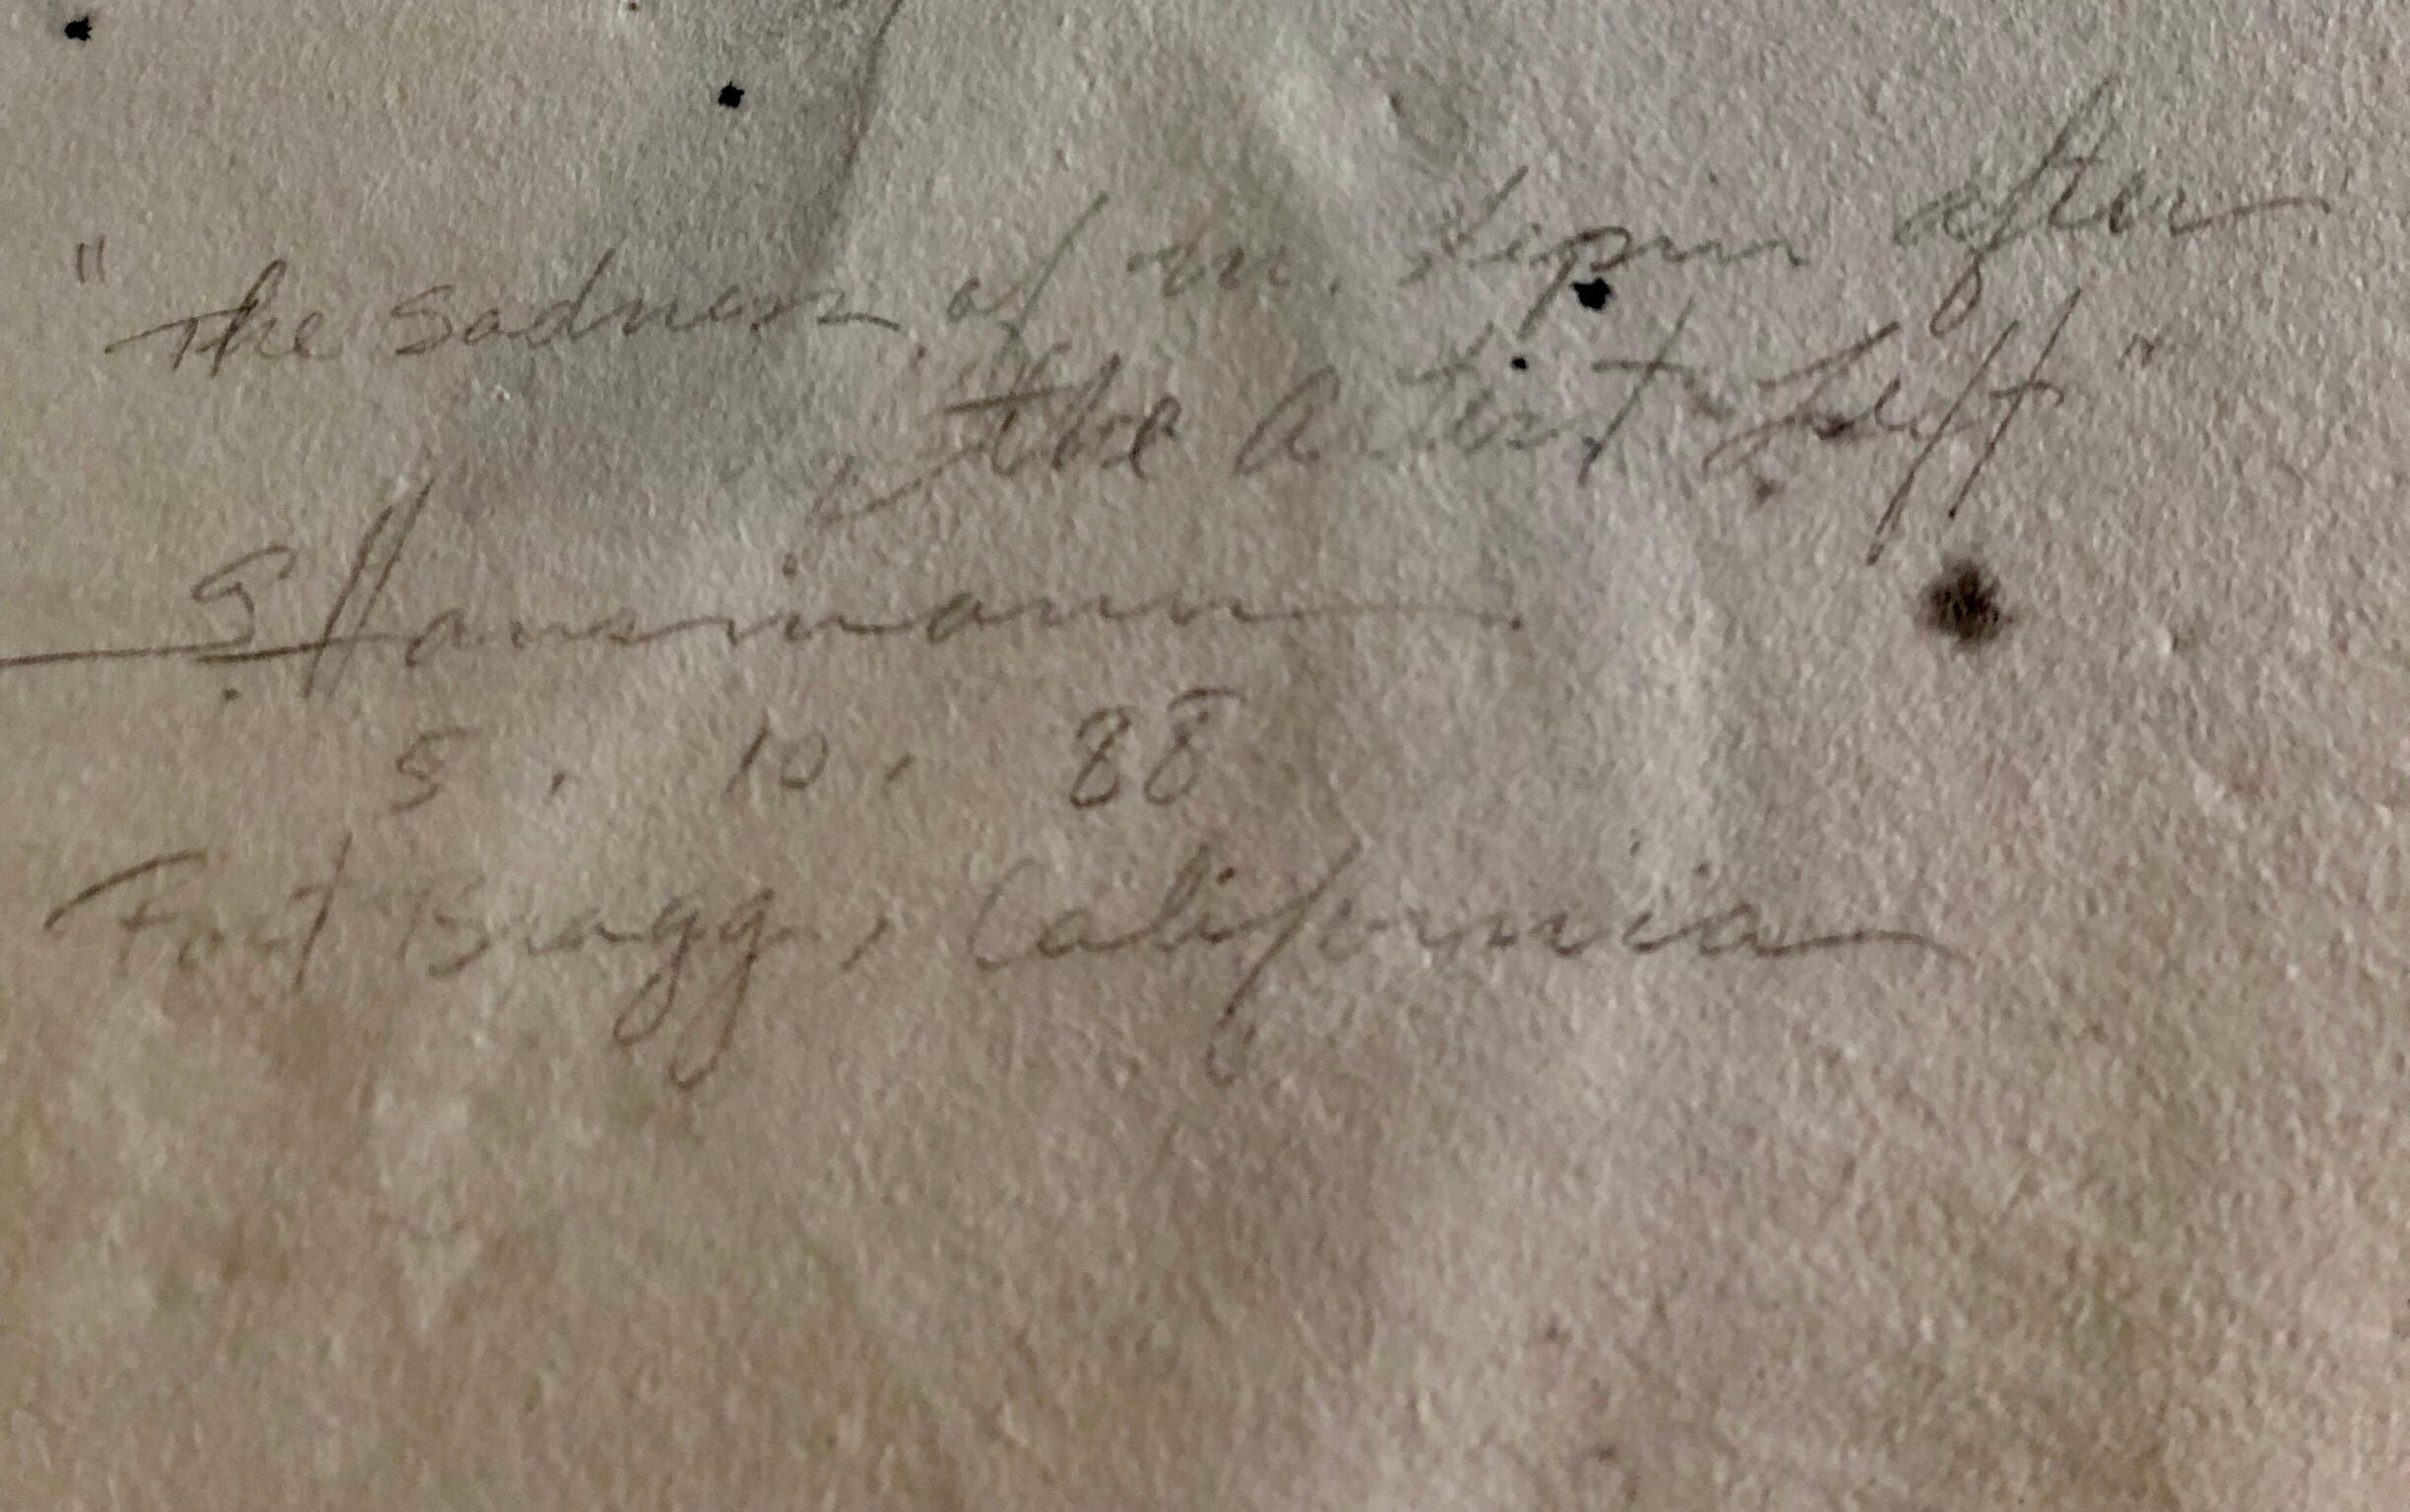 "The sadness of m. Lepin after
the artist left"
S. Hansmann
5. 10. 88
Fort Bragg, California